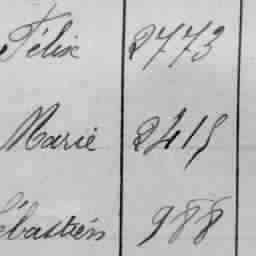 Félix 2773
Marie 2415
Sébastien 988